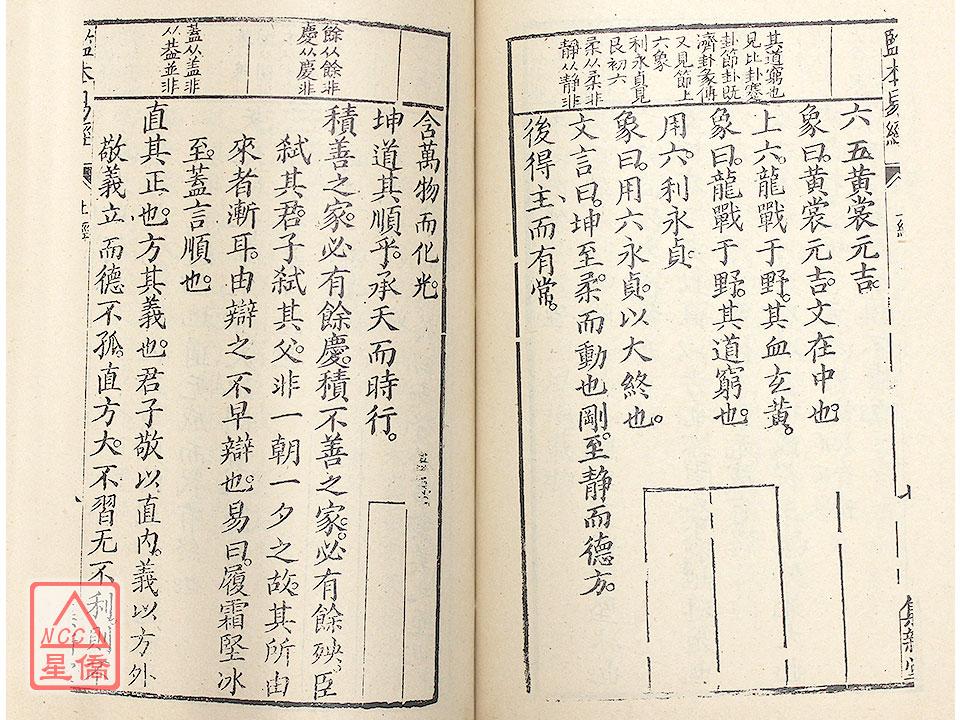 監本易經
其道窮也
見比卦蹇
卦節卦既
濟卦彖傳
又見節上
六象
利永貞見
艮初六
柔从柔非
静从靜非
六五黃裳元吉。
象曰。黃裳元吉。文在中也。
上六。龍戰于野。其血玄黃。
象曰。龍戰于野。其道窮也。
用六。利永貞。
象曰。用六永貞。以大終也。
文言曰。坤至柔。而動也剛。至静而德方。
後得主、而有常。
餘从餘非
慶从慶非
蓋从盖非
从葢並非
含萬物而化光。
坤道其順乎。承天而時行。
積善之家。必有餘慶。積不善之家。必有餘殃。臣
弑其君。子弑其父。非一朝一夕之故。其所由
來者漸耳。由辯之不早辯也。易曰。履霜堅冰
至。蓋言順也。
直其正也。方其義也。君子敬以直内。義以方外
敬義立而德不孤。直方大。不習无不利。則
監本易經
上經
NCC
星僑